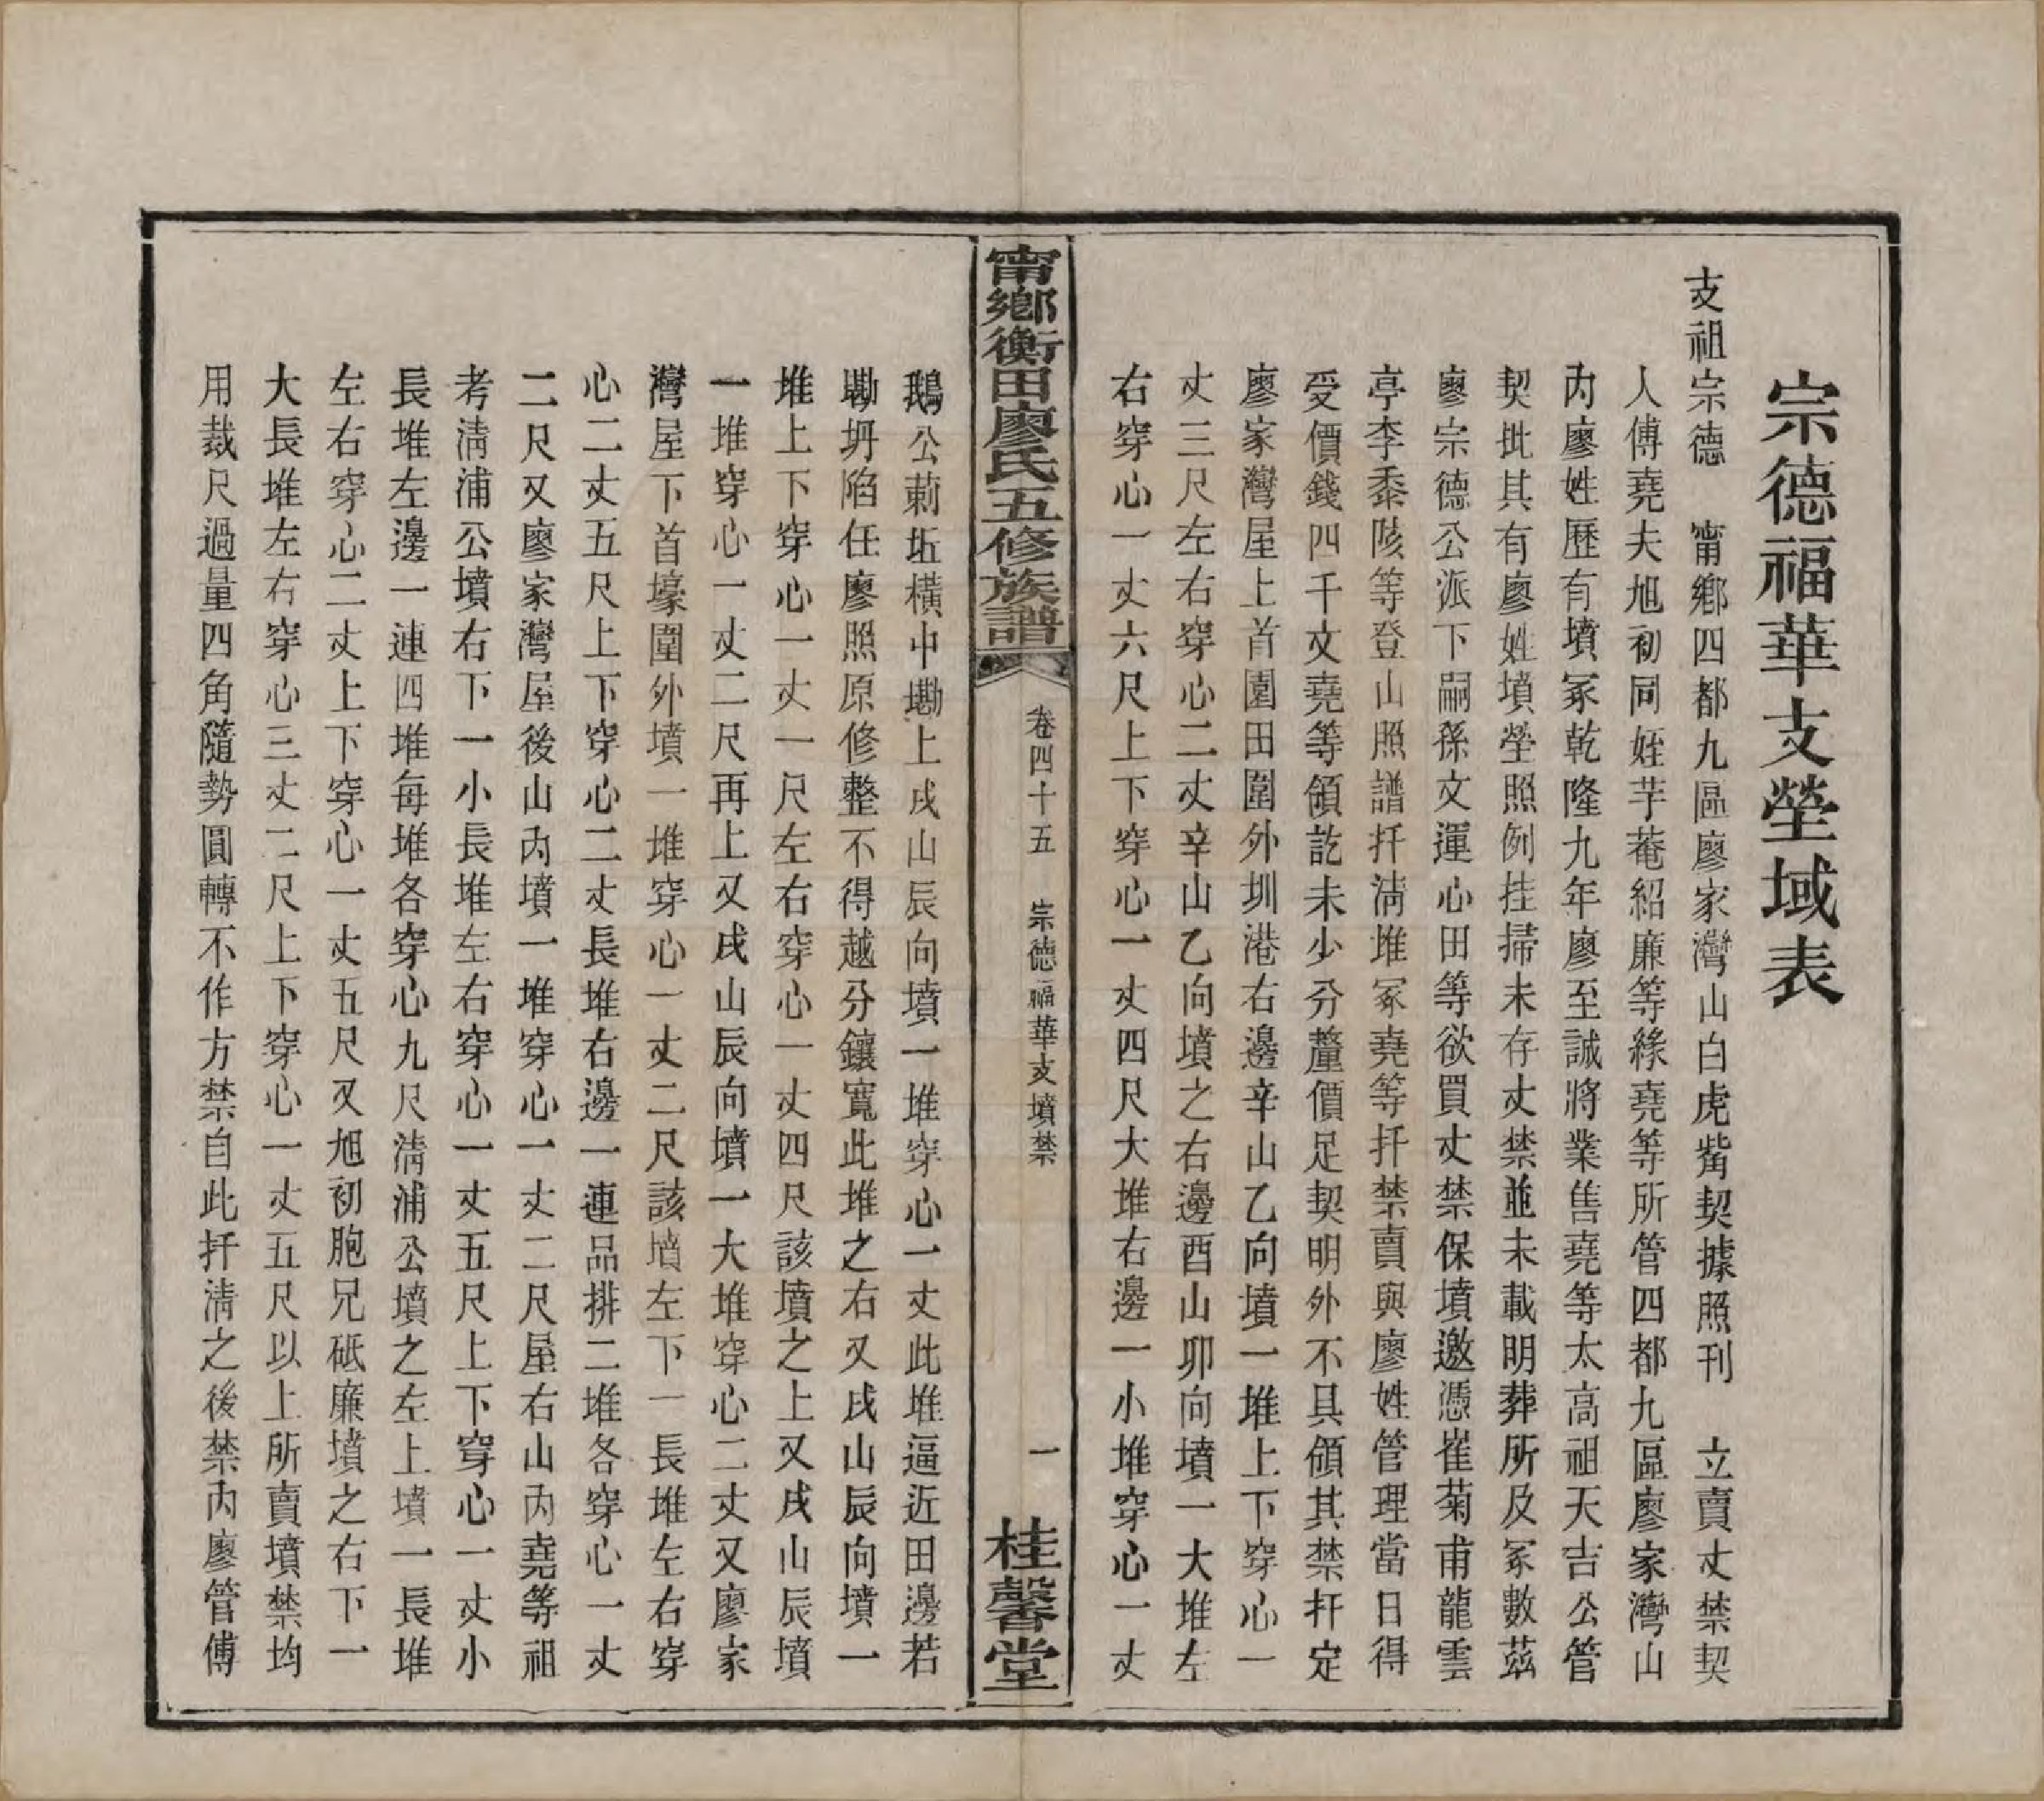 宗德福華支塋域表
支祖宗德　甯鄉四都九區廖家灣山白虎觜契據照刊　立賣丈禁契
人傅堯夫旭初同姪芋菴紹廉等緣堯等所管四都九區廖家灣山
內廖姓歷有墳冢乾隆九年廖至誠將業售堯等太高祖天吉公管
契批其有廖姓墳塋照例挂掃未存丈禁並未載明葬所及冢數茲
廖宗德公派下嗣孫文運心田等欲買丈禁保墳邀憑崔菊甫龍雲
亭李黍陔等登山照譜扦淸堆冢堯等扦禁賣與廖姓管理當日得
受價錢四千文堯等領訖未少分釐價足契明外不具領其禁扦定
廖家灣屋上首園田圍外圳港右邊辛山乙向墳一堆上下穿心一
丈三尺左右穿心二丈辛山乙向墳之右邊酉山卯向墳一大堆左
右穿心一丈六尺上下穿心一丈四尺大堆右邊一小堆穿心一丈
甯鄉衡田廖氏五修族譜　卷四十五　宗德福華支墳禁　一　桂馨堂
鵝公莿坵橫中磡上戌山辰向墳一堆穿心一丈此堆逼近田邊若
磡坍陷任廖照原修整不得越分鑲寬此堆之右又戌山辰向墳一
堆上下穿心一丈一尺左右穿心一丈四尺該墳之上又戌山辰墳
一堆穿心一丈二尺再上又戌山辰向墳一大堆穿心二丈又廖家
灣屋下首壕圍外墳一堆穿心一丈二尺該墳左下一長堆左右穿
心二丈五尺上下穿心二丈長堆右邊一連品排二堆各穿心一丈
二尺又廖家灣屋後山內墳一堆穿心一丈二尺屋右山內堯等祖
考淸浦公墳右下一小長堆左右穿心一丈五尺上下穿心一丈小
長堆左邊一連四堆每堆各穿心九尺淸浦公墳之左上墳一長堆
左右穿心二丈上下穿心一丈五尺又旭初胞兄砥廉墳之右下一
大長堆左右穿心三丈二尺上下穿心一丈五尺以上所賣墳禁均
用裁尺過量四角隨勢圓轉不作方禁自此扦淸之後禁內廖管傅